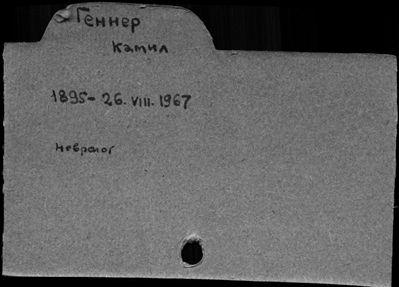 Геннер
Камил
1895- 26. VIII. 1967
невролог